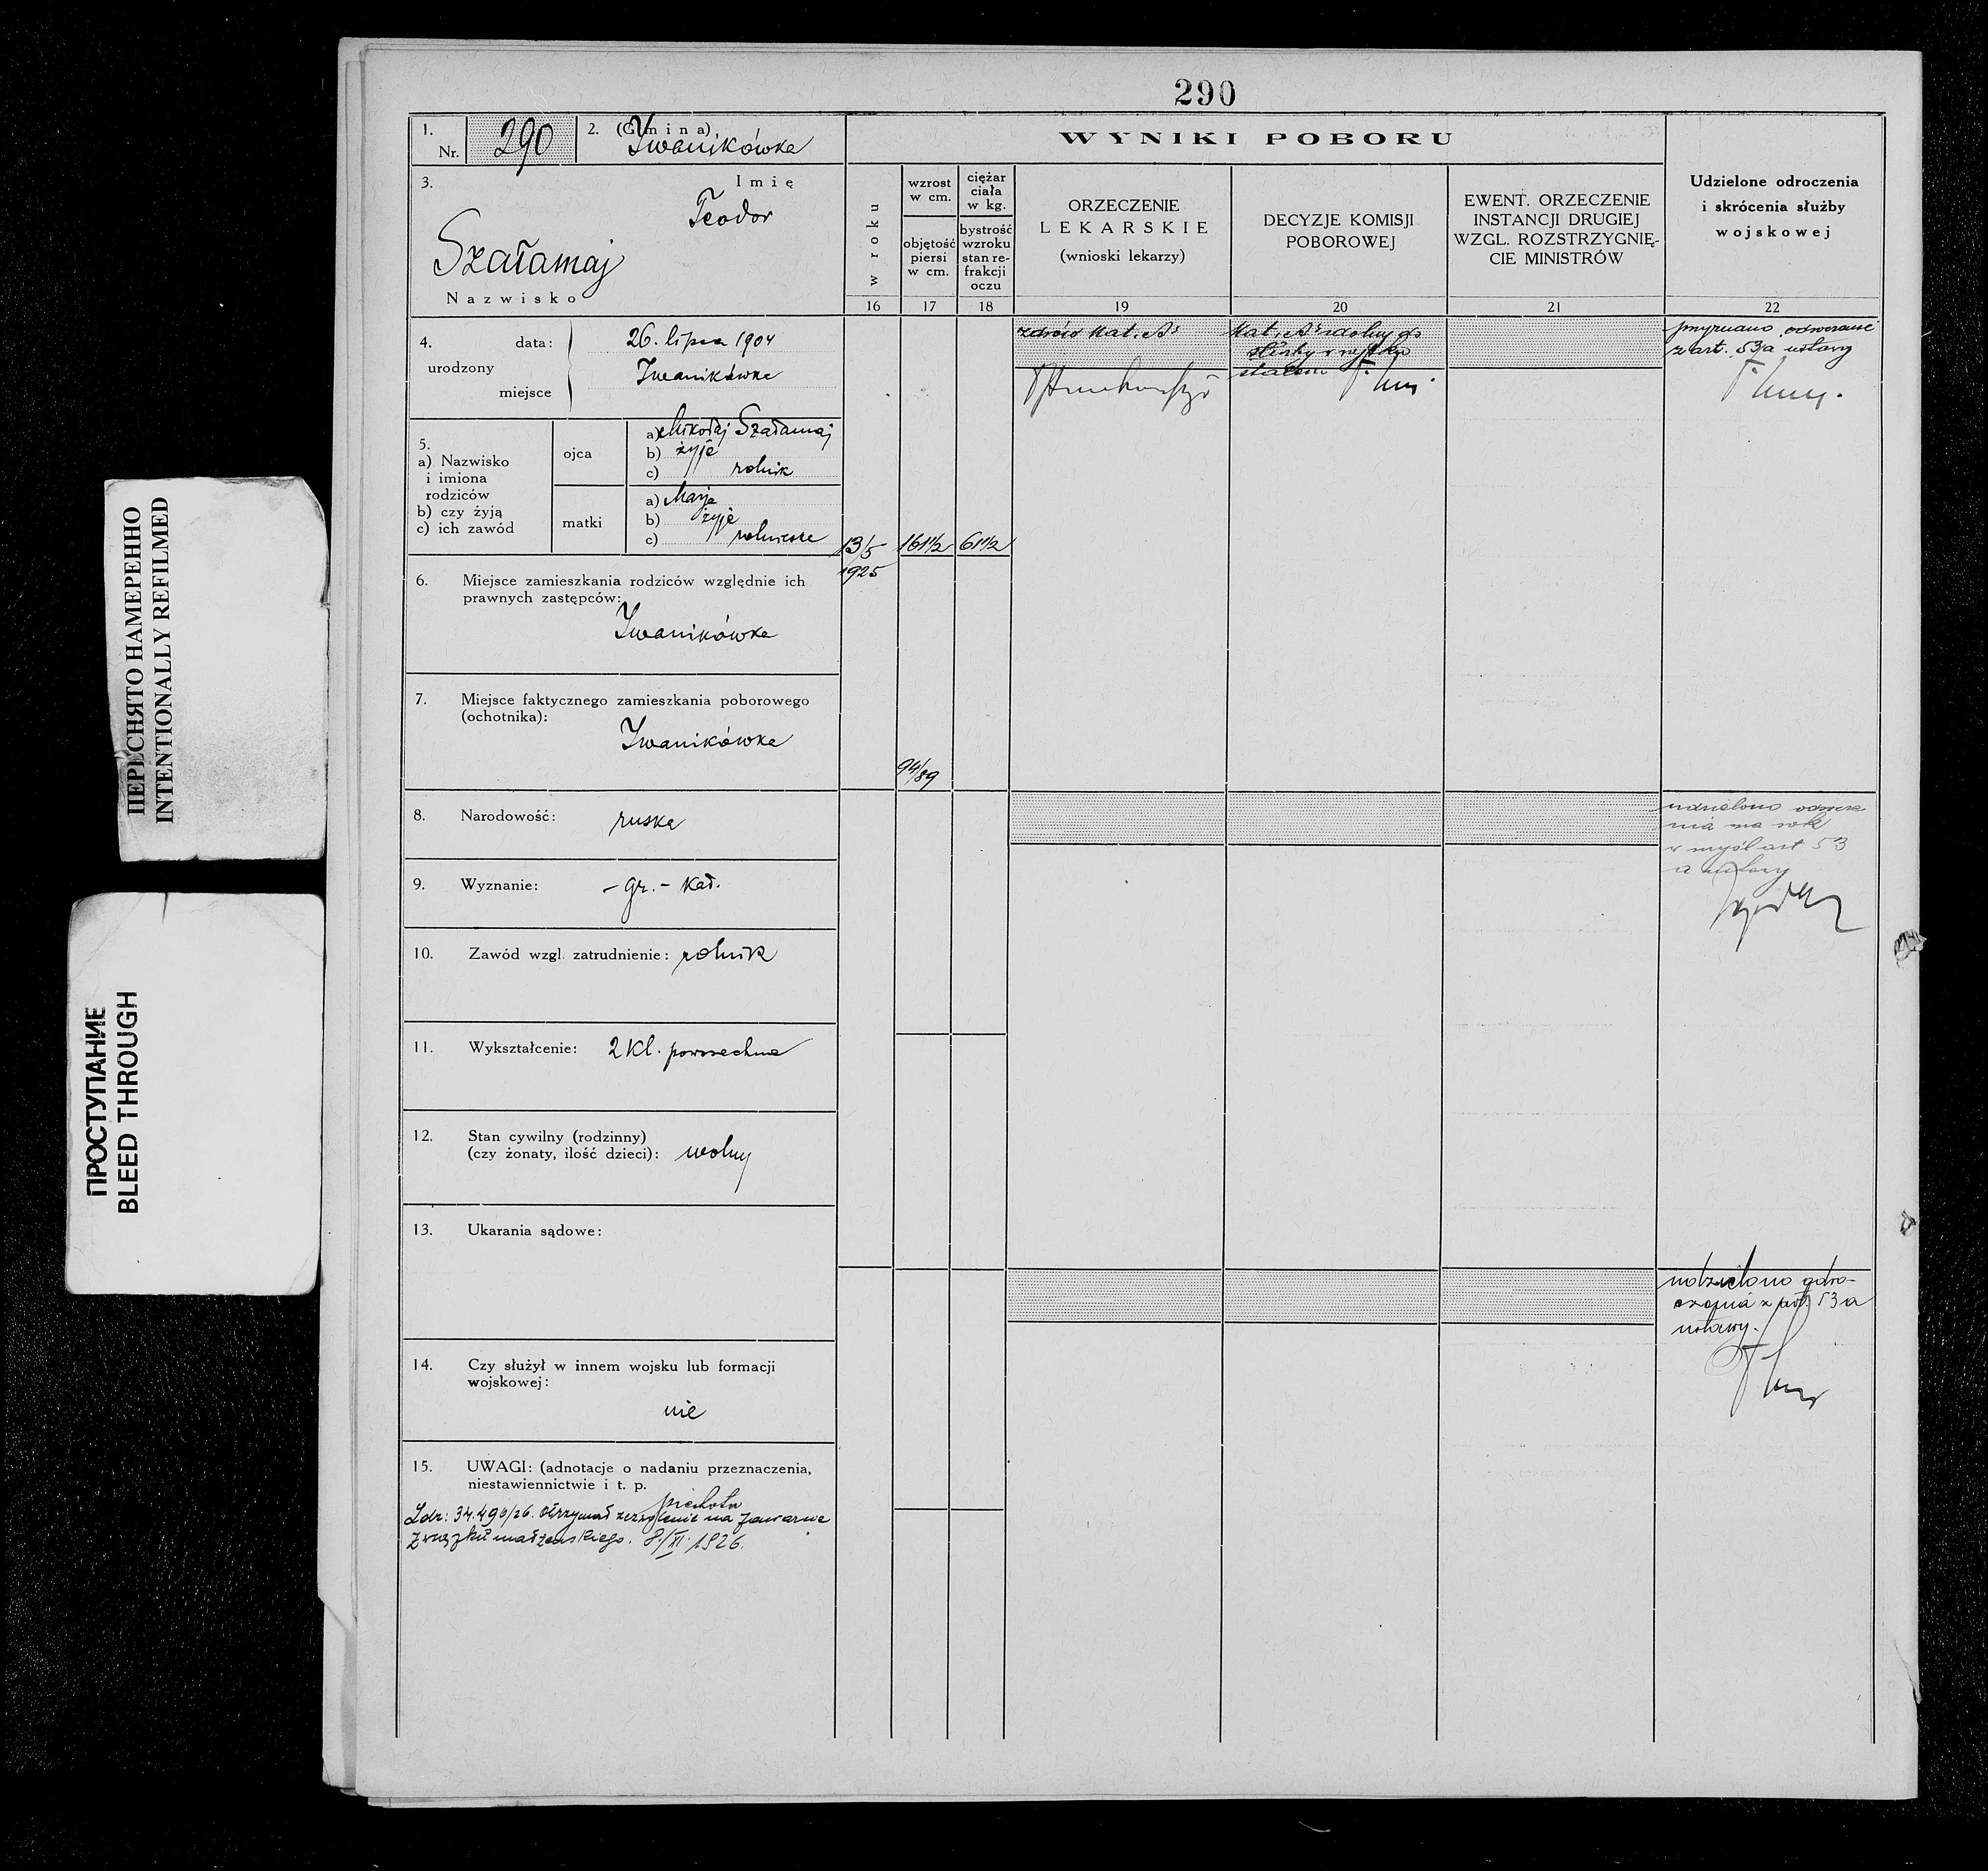 290
1.
Nr. 290
2. (Gmina)
Iwanikówka
3.
Imię
Teodor
Szałamaj
Nazwisko
4. urodzony
data: 26. lipca 1904
miejsce Iwanikówka
5.
a) Nazwisko
i imiona
rodziców
b) czy żyją
c) ich zawód
ojca
a) Mikołaj Szałamaj
b) żyje
c) rolnik
matki
a) Marja
b) żyje
c)
6. Miejsce zamieszkania rodziców względnie ich
prawnych zastępców:
Iwanikówka
7. Miejsce faktycznego zamieszkania poborowego
(ochotnika):
Iwanikówka
8. Narodowość: ruska
9. Wyznanie: - gr. - kat.
10. Zawód wzgl. zatrudnienie: rolnik
11. Wykształcenie: 2 kl. powszechna
12. Stan cywilny (rodzinny)
(czy żonaty, ilość dzieci): wolny
13. Ukarania sądowe:
14. Czy służył w innem wojsku lub formacji
wojskowej:
nie
15. UWAGI: (adnotacje o nadaniu przeznaczenia,
niestawiennictwie i t. p.
piechota
L.dz: 34.490/26. otrzymał zezwolenie na zawarcie
związku małżeńskiego. 8/XI 1926.
WYNIKI POBORU
w roku
16
13/5
1925
wzrost
w cm.
objętość
piersi
w cm.
17
161 1/2
94/89
ciężar
ciała
w kg.
bystrość
wzroku
stan re-
frakcji
oczu
18
61 1/2
ORZECZENIE
LEKARSKIE
(wnioski lekarzy)
19
zdrów kat. A
DECYZJE KOMISJI
POBOROWEJ
20
kat. A zdolny do
służby w wojsku
stałem
EWENT. ORZECZENIE
INSTANCJI DRUGIEJ
WZGL. ROZSTRZYGNIĘ-
CIE MINISTRÓW
21
Udzielone odroczenia
i skrócenia służby
wojskowej
22
przyznano odroczenie
z art. 53a ustawy
udzielono odrocze
nia na rok
w myśl art 53
a ustawy
udzielono odro-
czenia z art. 53 a
ustawy.
ПЕРЕСНЯТО НАМЕРЕННО
INTENTIONALLY REFILMED
ПРОСТУПАНИЕ
BLEED THROUGH